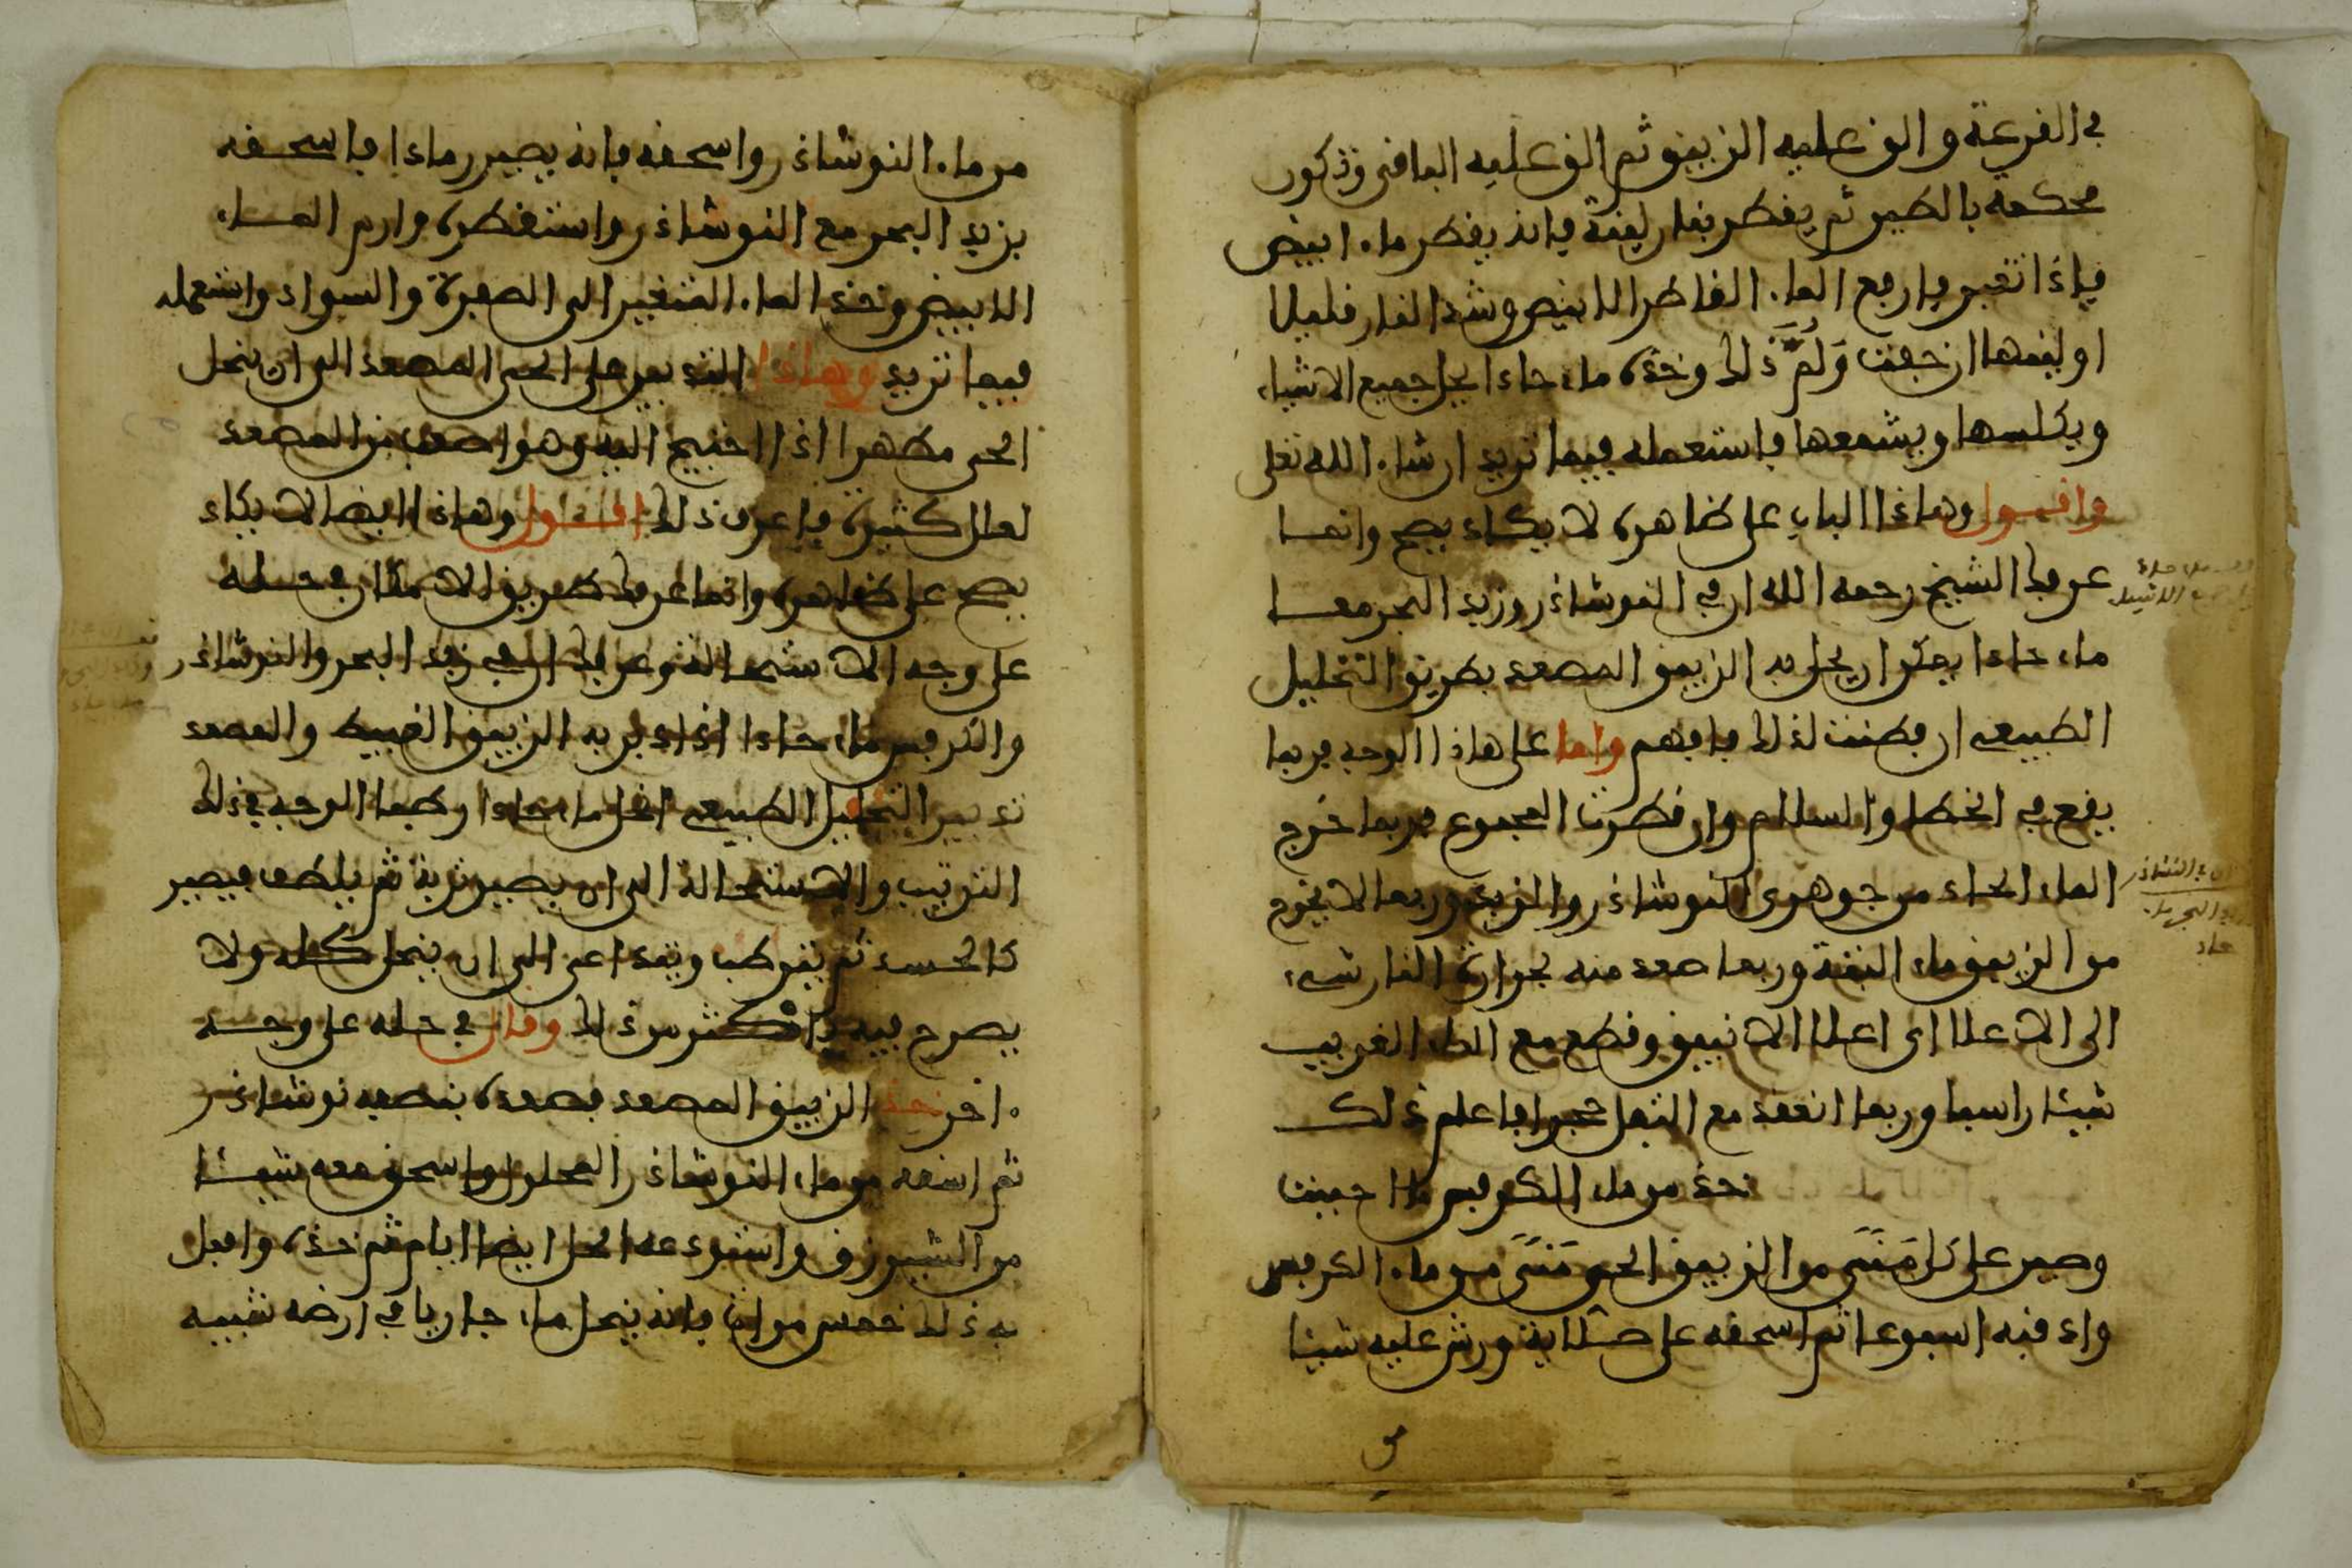 في الفرعة والق عليه الزيبق ثم الق عليه الباقي وتكون
محكمة بالطين ثم يقطر بنار لينة فإنه يقطر ماء ابيض
فإذا تغير فارفع الماء القاطر الابيض وشد النار قليلا
او لقمها ان جفت ولم ذلك وخذه ماء حادا يحل جميع الاشياء
ويكلسها ويشمعها فاستعمله فيما تريد ان شاء الله تعلى
واقول وهاذا الباب على ظاهره لا يكاد يصح وانما
عرفك الشيخ رحمه الله ان في النوشاذر وزبد البحر معا
ماء حادا يمكن ان يحل به الزيبق المصعد بطريق التحليل
الطبيعي ان فطنت لذلك فافهم واما على هاذا الوجه فربما
يقع فيه الخطا والسلام وان قطرت المجموع فربما خرج
الماء الحاد من جوهري النوشاذر والزبد وربما لا يخرج
من الزيبق ماء البتة وربما صعد منه بحرارة النار شيء
الى الاعلا اى اعلا الانبيق وقطع مع الماء الغريب
شيئا راسبا وربما انعقد مع الثفل حجرا فاعلم ذلك
خذ من ماء الكرفس ما احببت
وصير على كل مَنَّى من الزيبق الحي مَنَّى من ماء الكرفس
وادفنه اسبوعا ثم اسحقه على صلاية ورش عليه شيئا
من
من ماء النوشاذر واسحقه فإنه يصير رمادا فاسحقه
بزبد البحر مع النوشاذر واستقطره وارم الماء
الابيض وخذ الماء المتغير الى الصفرة والسواد واستعمله
فيما تريد وهاذا التدبير على الحي المصعد الى ان ينحل
الحي مطهرا اذا احتيج اليه وهو اصعب من المصعد
لعلل كثيرة فاعرف ذلك اقول وهاذا ايضا لا يكاد
يصح على ظاهره وانما عرفك طريق الامكان في حله
على وجه الاستحالة وعرفك ان في زبد البحر والنوشاذر
والكرفس ماء حادا اذا دبر به الزيبق الغبيط والمصعد
تدبير التحليل الطبيعي انحل ماء حادا وكيما الوجه في ذلك
الترتيب والاستحالة الى ان يصير تربة ثم يلطف فيصير
كالجسد ثم يترطب ويتداعى الى ان ينحل كله ولا
يصرح فيه باكثر من ذلك وقال في حله على وجه
اخر خذ الزيبق المصعد فصعده بنصفه نوشاذر
ثم اسقه من ماء النوشاذر المحلول واسحق معه شيئا
من الشيرزق واستودعه الحل ايضا ايام ثم خذه وافعل
به ذلك خمس مرات فإنه ينحل ماء جاريا في ارضه شبيه